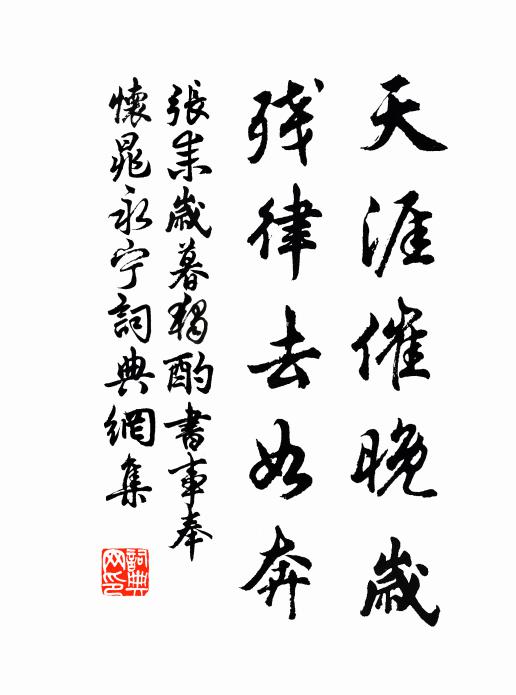 天涯催晚歲
殘律去如奔
張耒歲暮獨酌書事奉
懷晁永宁詞典網集
詞典網印